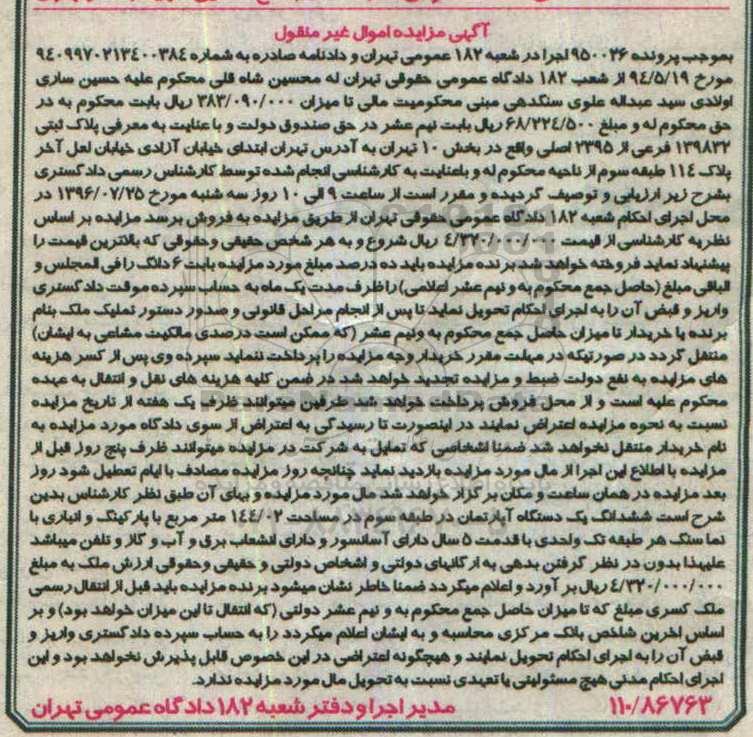 آگهی مزایده اموال غیر منقول
بموجب پرونده ۹۵۰۰۳۶ اجرا در شعبه ۱۸۲ عمومی تهران و دادنامه صادره به شماره ۹۴۰۹۹۷۰۲۱۳۴۰۰۳۸۴
مورخ ۹۴/۵/۱۹ از شعب ۱۸۲ دادگاه عمومی حقوقی تهران له محسین شاه قلی محکوم علیه حسین ساری
اولادی سید عبداله علوی سنگدهی مبنی محکومیت مالی تا میزان ۳۸۳/۰۹۰/۰۰۰ ریال بابت محکوم به در
حق محکوم له و مبلغ ۶۸/۲۲۴/۵۰۰ ریال بابت نیم عشر در حق صندوق دولت و با عنایت به معرفی پلاک ثبتی
۱۳۹۸۳۲ فرعی از ۲۳۹۵ اصلی واقع در بخش ۱۰ تهران به آدرس تهران ابتدای خیابان آزادی خیابان لعل آخر
پلاک ۱۱۴ طبقه سوم از ناحیه محکوم له و باعنایت به کارشناسی انجام شده توسط کارشناس رسمی دادگستری
بشرح زیر ارزیابی و توصیف گردیده و مقرر است از ساعت ۹ الی ۱۰ روز سه شنبه مورخ ۱۳۹۶/۰۷/۲۵ در
محل اجرای احکام شعبه ۱۸۲ دادگاه عمومی حقوقی تهران از طریق مزایده به فروش برسد مزایده بر اساس
نظریه کارشناسی از قیمت ۴/۳۲۰/۰۰۰/۰۰۰ ریال شروع و به هر شخص حقیقی وحقوقی که بالاترین قیمت را
پیشنهاد نماید فروخته خواهد شد برنده مزایده باید ده درصد مبلغ مورد مزایده بابت ۶ دانگ را فی المجلس و
الباقی مبلغ (حاصل جمع محکوم به و نیم عشر اعلامی) را ظرف مدت یک ماه به حساب سپرده موقت دادگستری
واریز و قبض آن را به اجرای احکام تحویل نماید تا پس از انجام مراحل قانونی و صدور دستور تملیک ملک بنام
برنده یا خریدار تا میزان حاصل جمع محکوم به ونیم عشر (که ممکن است درصدی مالکیت مشاعی به ایشان)
منتقل گردد در صورتیکه در مهلت مقرر خریدار وجه مزایده را پرداخت ننماید سپرده وی پس از کسر هزینه
های مزایده به نفع دولت ضبط و مزایده تجدید خواهد شد در ضمن کلیه هزینه های نقل و انتقال به عهده
محکوم علیه است و از محل فروش پرداخت خواهد شد طرفین میتوانند ظرف یک هفته از تاریخ مزایده
نسبت به نحوه مزایده اعتراض نمایند در اینصورت تا رسیدگی به اعتراض از سوی دادگاه مورد مزایده به
نام خریدار منتقل نخواهد شد ضمنا اشخاصی که تمایل به شرکت در مزایده میتوانند ظرف پنج روز قبل از
مزایده با اطلاع این اجرا از مال مورد مزایده بازدید نماید چنانچه روز مزایده مصادف با ایام تعطیل شود روز
بعد مزایده در همان ساعت و مکان برگزار خواهد شد مال مورد مزایده و بهای آن طبق نظر کارشناس بدین
شرح است ششدانگ یک دستگاه آپارتمان در طبقه سوم به مساحت ۱۴۴/۰۲ متر مربع با پارکینگ و انباری با
نما سنگ هر طبقه تک واحدی با قدمت ۵ سال دارای آسانسور و دارای انشعاب برق و آب و گاز و تلفن میباشد
علیهذا بدون در نظر گرفتن بدهی به ارگانهای دولتی و اشخاص دولتی و حقیقی وحقوقی ارزش ملک به مبلغ
۴/۳۲۰/۰۰۰/۰۰۰ ریال بر آورد و اعلام میگردد ضمنا خاطر نشان میشود برنده مزایده باید قبل از انتقال رسمی
ملک کسری مبلغ که تا میزان حاصل جمع محکوم به و نیم عشر دولتی (که انتقال تا این میزان خواهد بود) و بر
اساس اخرین شاخص بانک مرکزی محاسبه و به ایشان اعلام میگردد را به حساب سپرده دادگستری واریز و
قبض آن را به اجرای احکام تحویل نمایند و هیچگونه اعتراضی در این خصوص قابل پذیرش نخواهد بود و این
اجرای احکام مدنی هیچ مسئولیتی یا تعهدی نسبت به تحویل مال مورد مزایده ندارد.
۱۱۰/۸۶۷۶۳ مدیر اجرا و دفتر شعبه ۱۸۲ دادگاه عمومی تهران